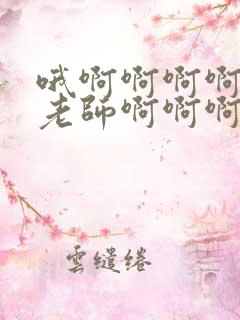 哦啊啊啊啊
老師啊啊啊
雲繾綣